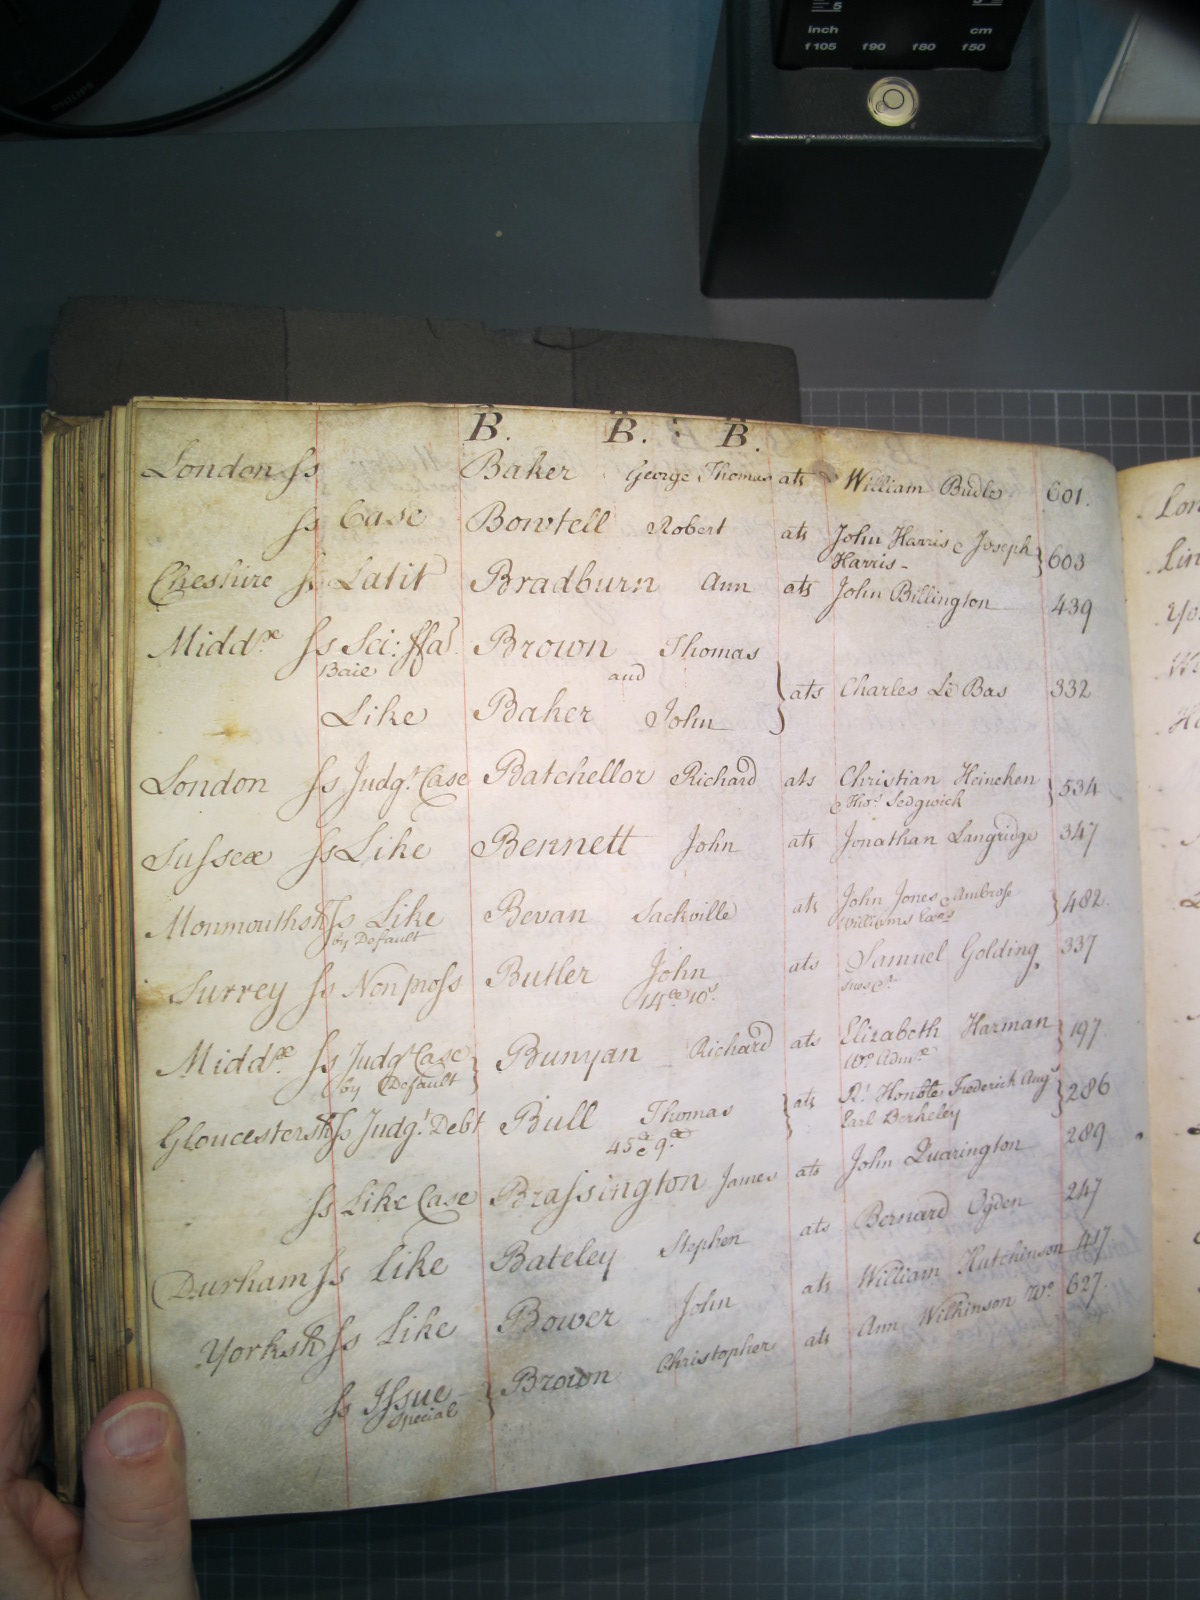 5
inch cm
f105 f90 f80 f50
PHILIPS
B. B. : B.
London Ss Baker George Thomas ats William Budle 601.
Ss Case Bowtell Robert ats John Harris & Joseph
Harris - } 603
Cheshire Ss Latit Bradburn Ann ats John Billington 439
Middx Ss Sci: ffa Brown Thomas
Baie and
} ats Charles Le Bas 332
Like Baker John
London Ss Judgt Case Batchellor Richard ats Christian Heineken
& Thos Sedgwick } 534
Sussex Ss Like Bennett John ats Jonathan Langridge 347
Monmouthsh Ss Like Bevan Sackville ats John Jones & Ambrose
by Default Williams } 482
Surrey Ss Non pross Butler John ats Samuel Golding 337
14 10s
Middx Ss Judgt Case } Bunyan Richard ats Elizabeth Harman } 197
by Default Wo Admx
Gloucestersh Ss Judgt Debt Bull Thomas } ats Rt Honble Frederick Augs
45 & 9 Earl Berkeley } 286
Ss Like Case Brassington James ats John Quarington 289
Durham Ss Like Bateley Stephen ats Bernard Ogden 247
Yorksh Ss Like Bower John ats William Hutchinson 417
Ss Issue } Brown Christopher ats Ann Wilkinson Wo 627.
Special
Lon
Lin
Yo